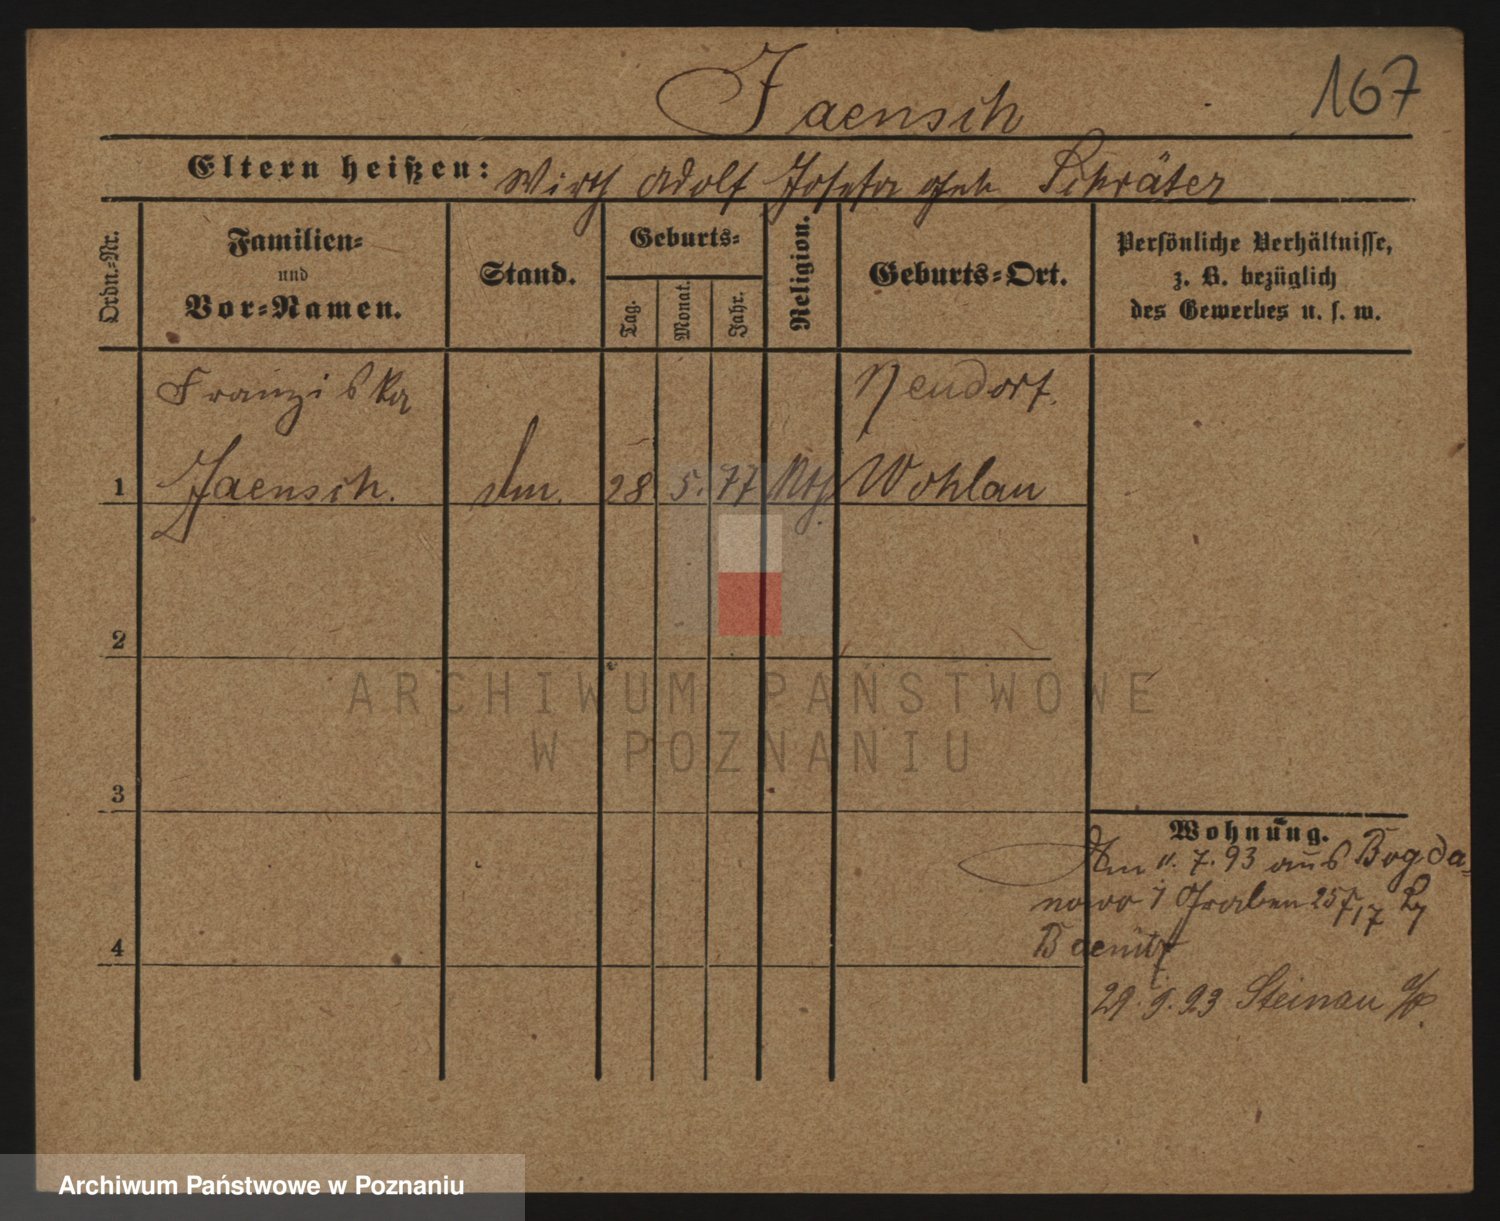 Jaensch
167
Eltern heißen: Wirth Adolf Josefa geb. Schräter
Ordn.-Nr.
Familien-
und
Vor-Namen.
Stand.
Geburts-
Tag.
Monat.
Jahr.
Religion.
Geburts-Ort.
Persönliche Verhältnisse,
z. B. bezüglich
des Gewerbes u. s. w.
Franziska Neudorf.
1 Jaensch. 28 5. 77 Wohlau
2
ARCHIWUM PAŃSTWOWE
W POZNANIU
3
Wohnung.
Am 11. 7. 93 aus Bogda-
nowo Graben 25
29. 9. 93 Steinau a/O.
4
Archiwum Państwowe w Poznaniu